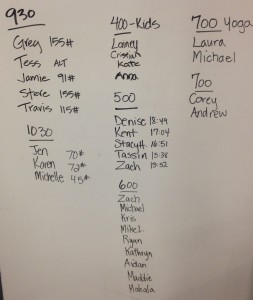 930
Greg 155#
Tess ALT
Jamie 91#
Steve 155#
Travis 115#
1030
Jen 70#
Karen 72#
Michelle 45#
400-Kids
Lanny
Cristian
Kate
Anna
500
Denise 18:49
Kent 17:04
Stacy H. 16:51
Tassin 15:38
Zach 15:52
600
Zach
Michael
Kris
Mike L.
Ryan
Kathryn
Aidan
Maddie
Makala
700 Yoga
Laura
Michael
700
Corey
Andrew